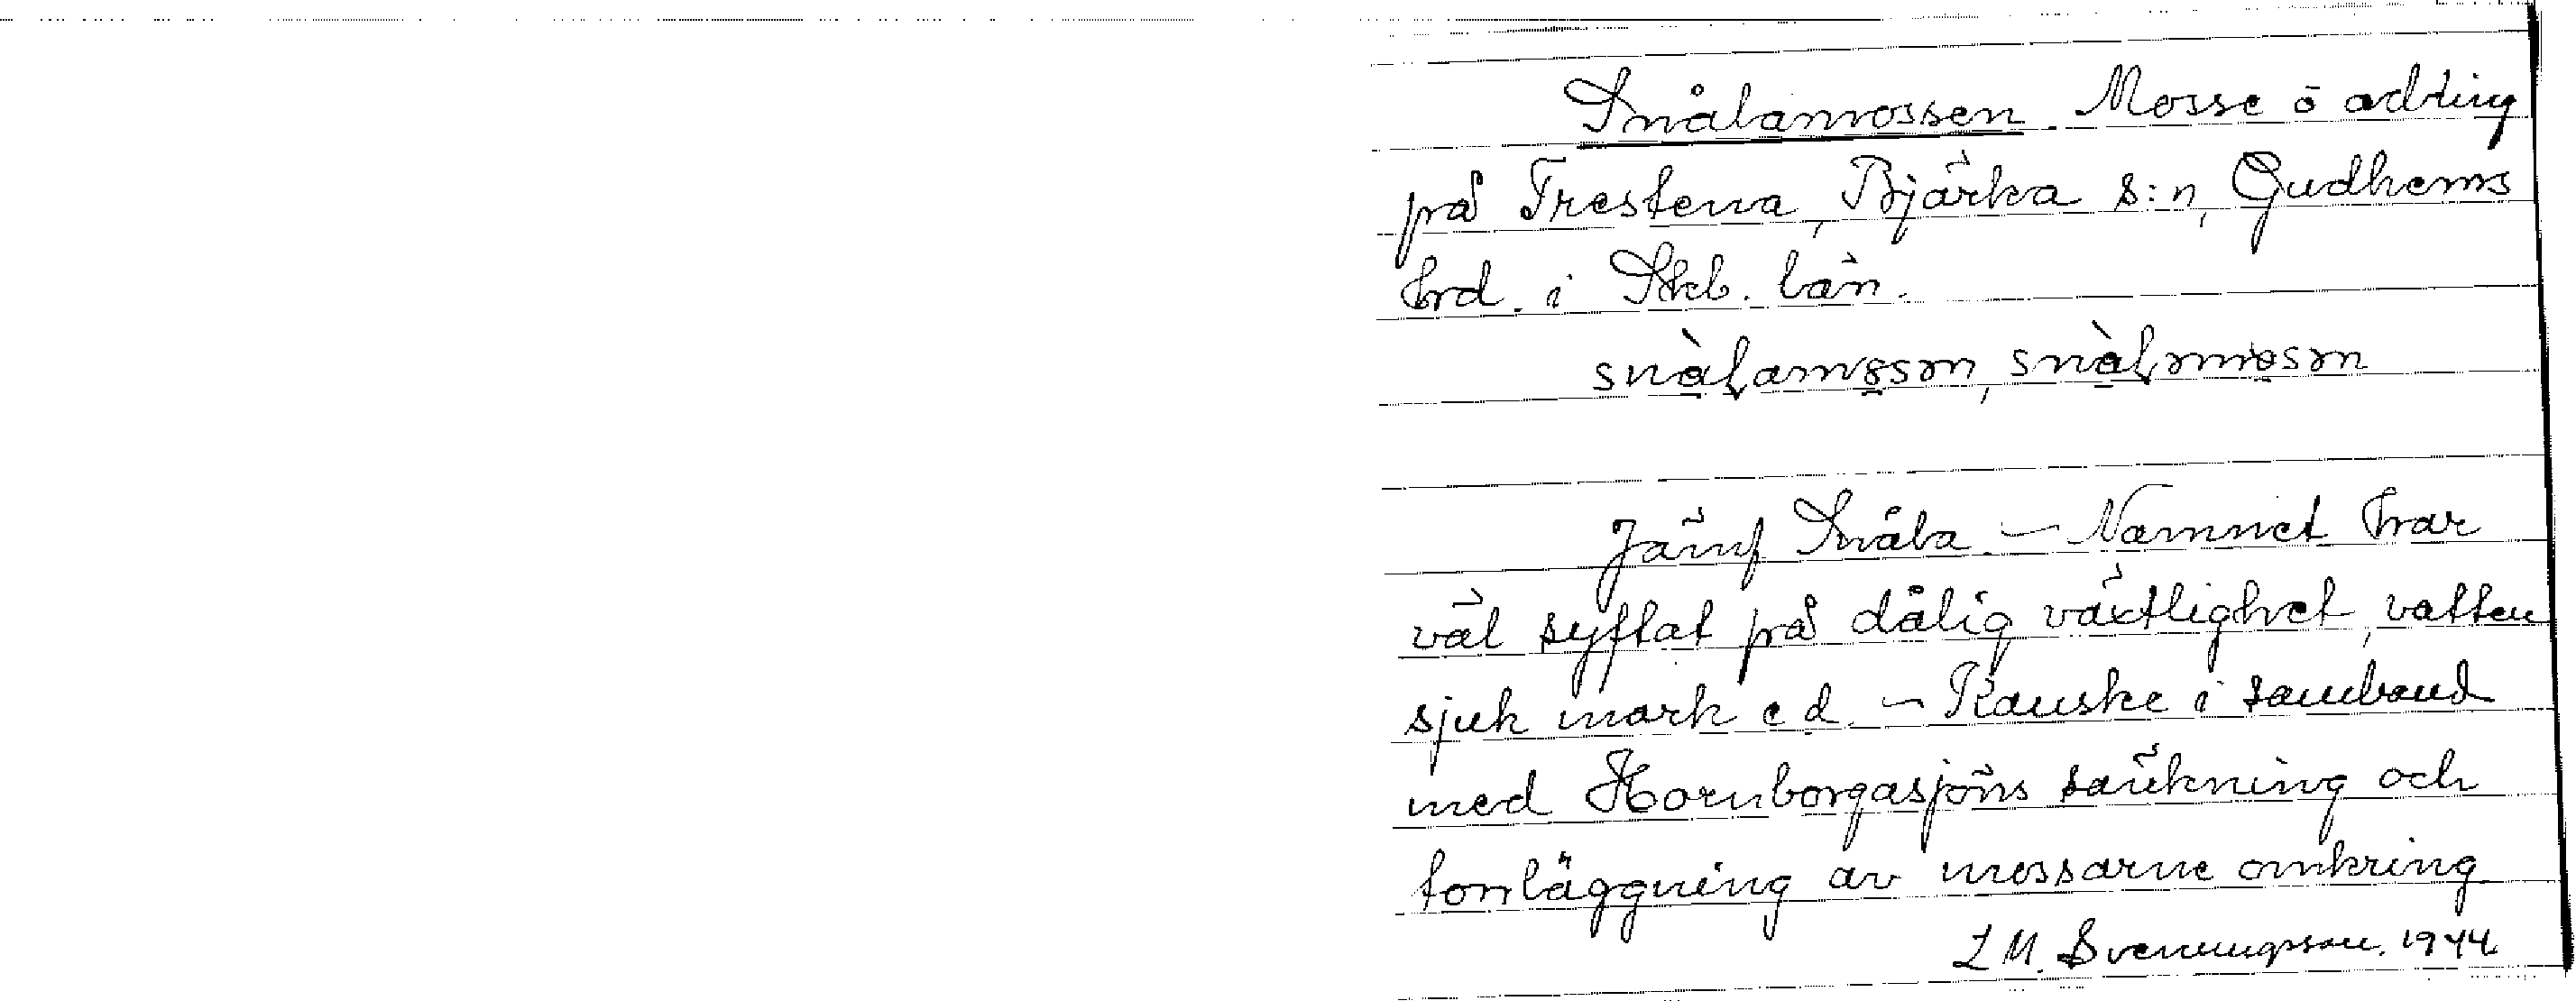 Snålamossen. Mosse o odling
på Trestena, Bjärka s:n, Gudhems
hrd. i Skb. län.
snàlamosən, snàləmosən
Jämf Snåla. – Namnet har
väl syftat på dålig växtlighet, vatten
sjuk mark e d. – Kanske i samband
med Hornborgasjöns sänkning och
torrläggning av mossarne omkring
L M. Svenungsson. 1944